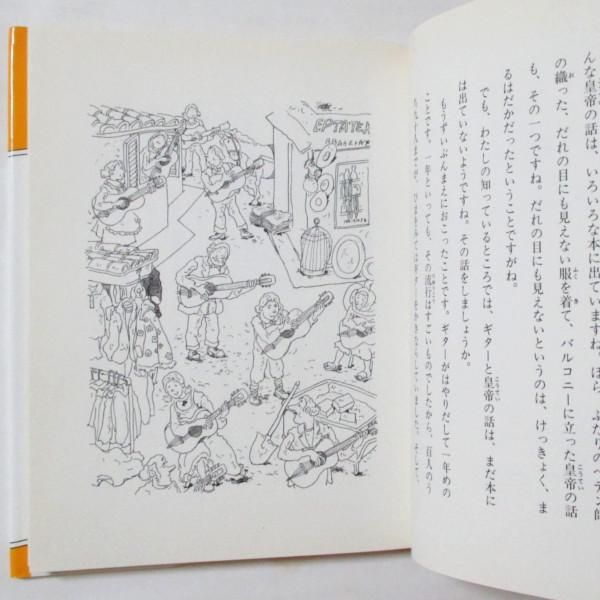 んな皇帝の話は、いろいろな本に出ていますね。ほら、ふたりのペテン師
の織った、だれの目にも見えない服を着て、バルコニーに立った皇帝の話
も、その一つですね。だれの目にも見えないというのは、けっきょく、ま
るはだかだったということですがね。
でも、わたしの知っているところでは、ギターと皇帝の話は、まだ本に
は出ていないようですね。その話をしましょうか。
もうずいぶんまえにおこったことです。ギターがはやりだして一年めの
ことです。一年といっても、その流行はすごいものでしたから、百人のう